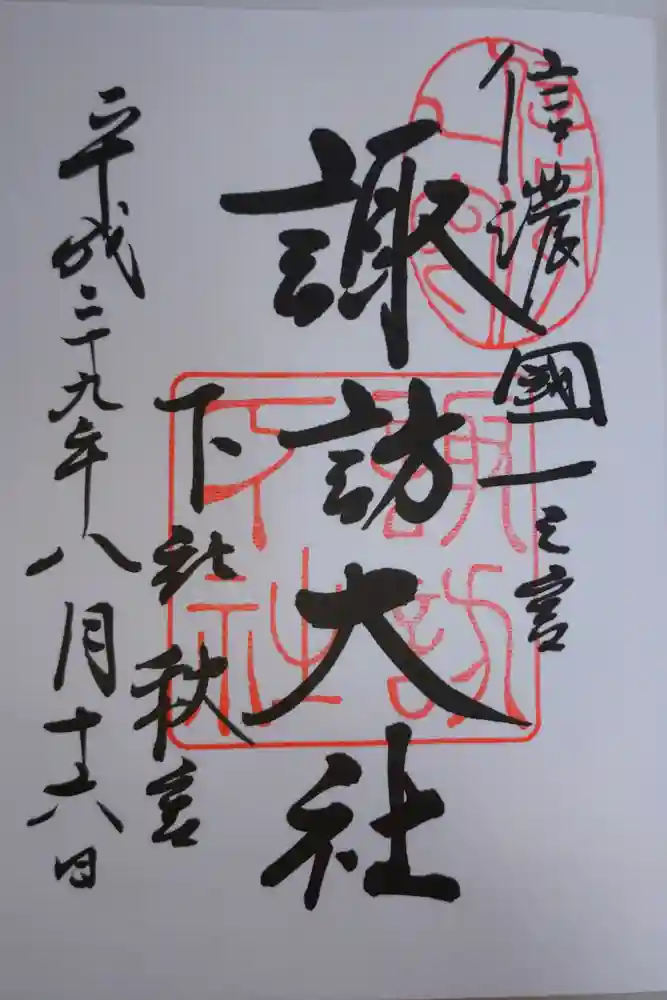 信濃國一之宮
諏訪大社
下社秋宮
平成二十九年八月十六日
諏訪
下社